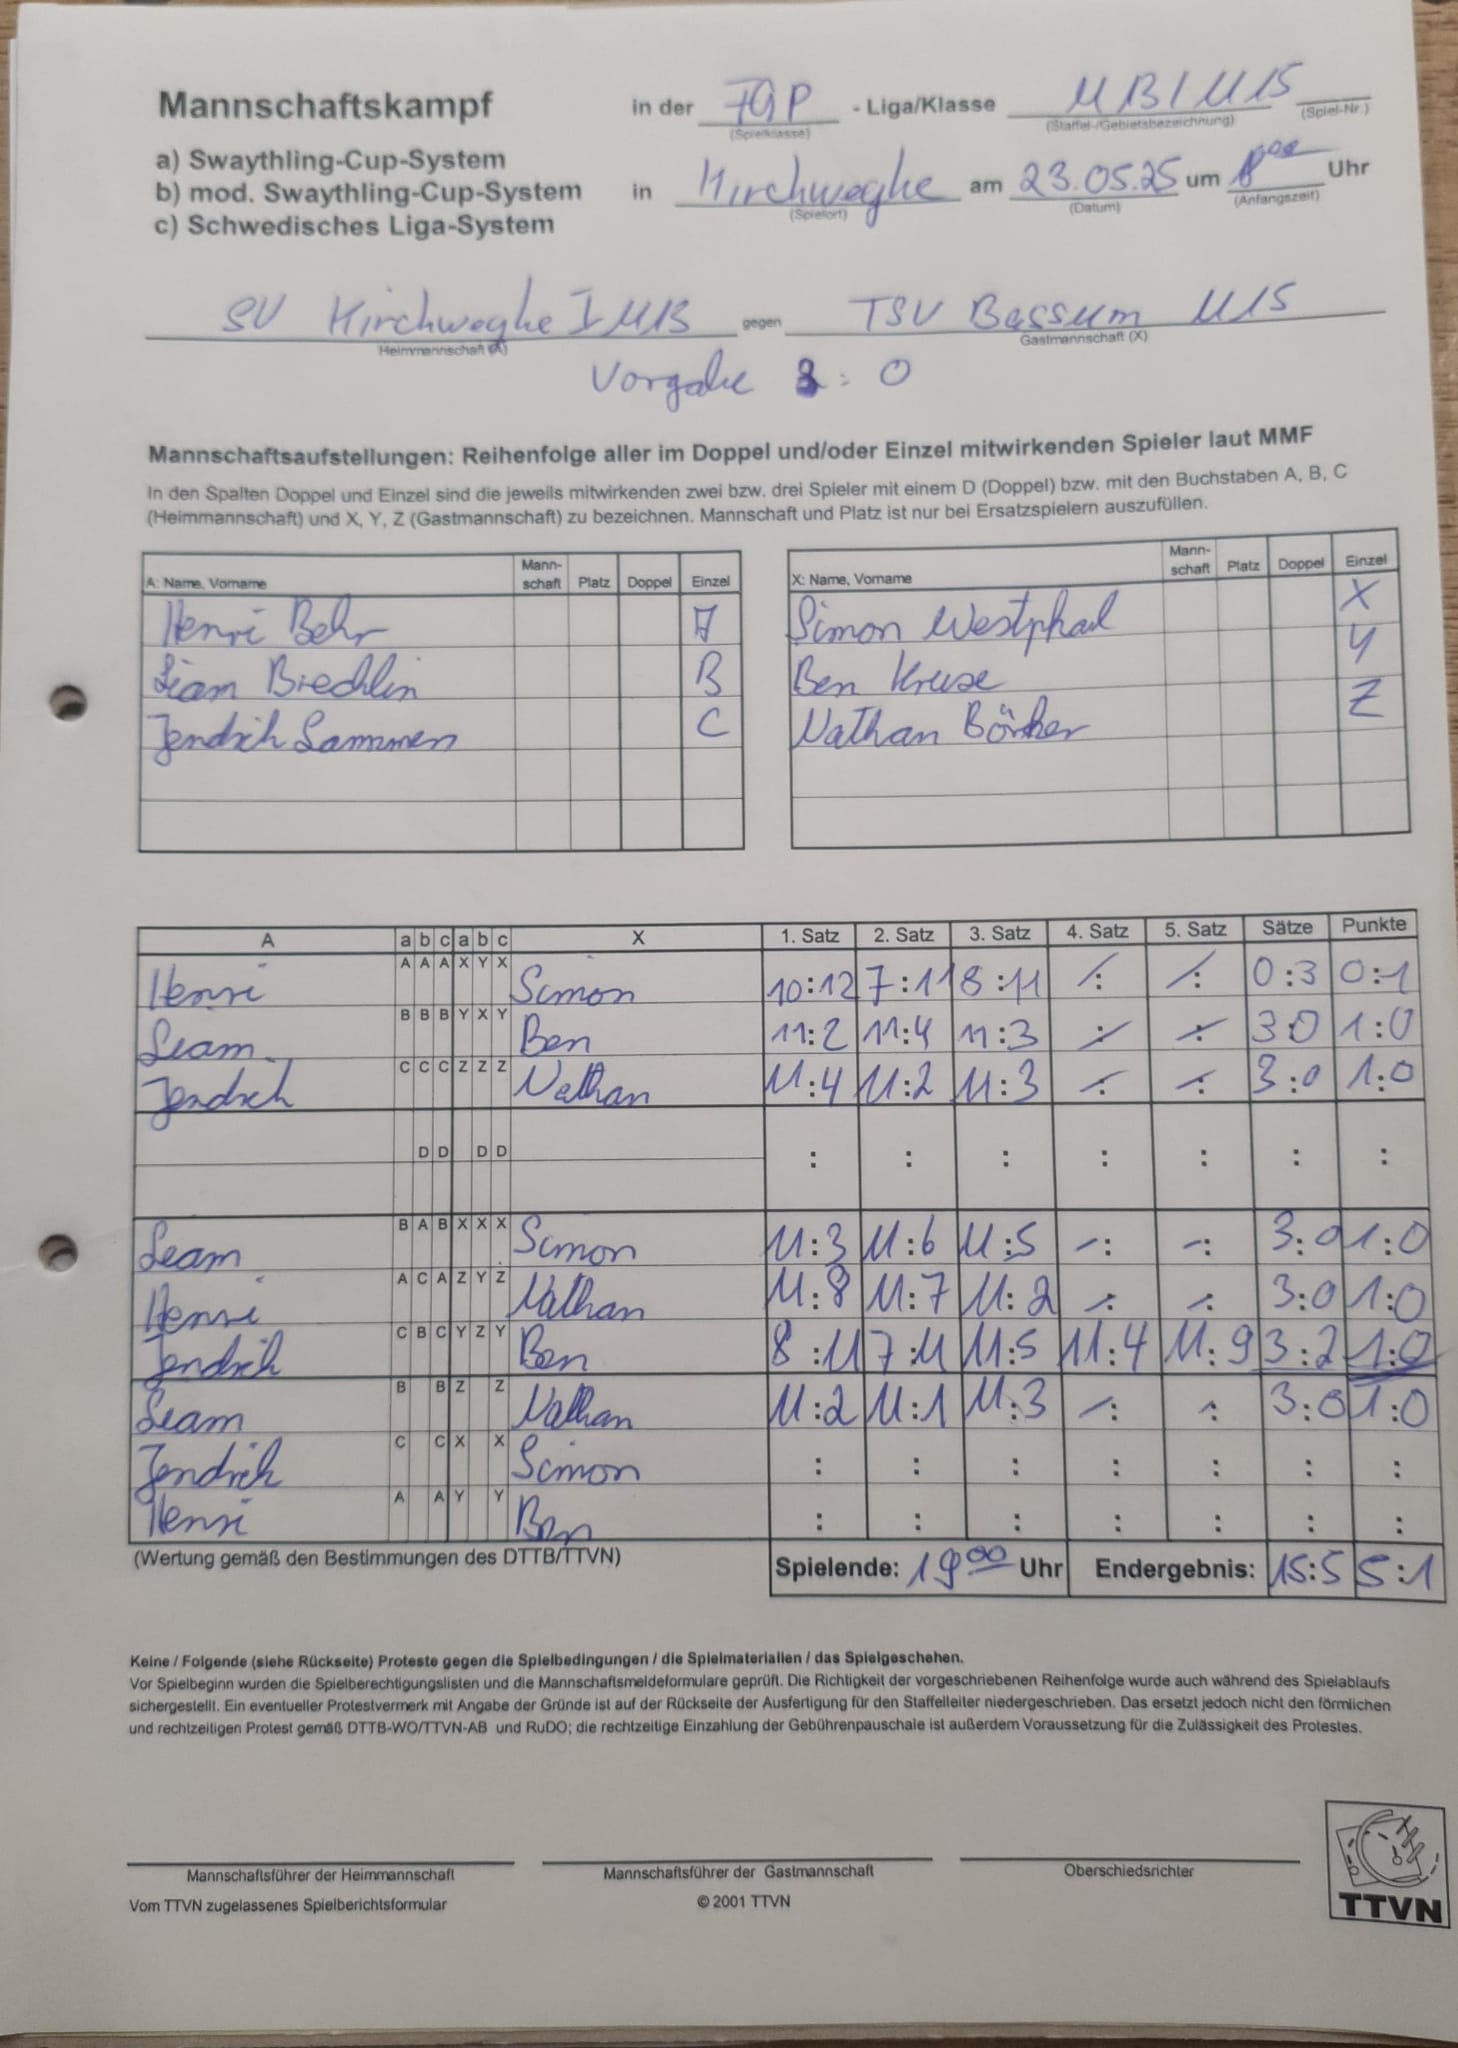 Mannschaftskampf in der FGP - Liga/Klasse (Spielklasse) (Staffel-/Gebietsbezeichnung) (Spiel-Nr.)
a) Swaythling-Cup-System
b) mod. Swaythling-Cup-System in Kirchweyhe am 23.05.25 um Uhr
(Spielort) (Datum) (Anfangszeit)
c) Schwedisches Liga-System
SV Kirchweyhe I gegen TSV Bassum U15
Heimmannschaft (A) Gastmannschaft (X)
Vorgabe : 0
Mannschaftsaufstellungen: Reihenfolge aller im Doppel und/oder Einzel mitwirkenden Spieler laut MMF
In den Spalten Doppel und Einzel sind die jeweils mitwirkenden zwei bzw. drei Spieler mit einem D (Doppel) bzw. mit den Buchstaben A, B, C
(Heimmannschaft) und X, Y, Z (Gastmannschaft) zu bezeichnen. Mannschaft und Platz ist nur bei Ersatzspielern auszufüllen.
A: Name, Vorname Mann-schaft Platz Doppel Einzel X: Name, Vorname Mann-schaft Platz Doppel Einzel
Henri Behr A Simon Westphal X
Liam Brechlin B Ben Kruse Y
Jendrik Lammen C Nathan Z
A a b c a b c X 1. Satz 2. Satz 3. Satz 4. Satz 5. Satz Sätze Punkte
Henri A A A X Y X Simon 10:12 7:11 8:11 : : 0:3 0:1
Liam B B B Y X Y Ben 11:2 11:4 11:3 : : 3:0 1:0
Jendrik C C C Z Z Z Nathan 11:4 11:2 11:3 : : 3:0 1:0
D D D D : : : : : : :
Liam B A B X X X Simon 11:3 11:6 11:5 : : 3:0 1:0
Henri A C A Z Y Z Nathan 11:8 11:7 11:2 : : 3:0 1:0
Jendrik C B C Y Z Y Ben 8:11 7:11 11:5 11:4 11:9 3:2 1:0
Liam B B Z Z Nathan 11:2 11:1 11:3 : : 3:0 1:0
Jendrik C C X X Simon : : : : : : :
Henri A A Y Y Ben : : : : : : :
(Wertung gemäß den Bestimmungen des DTTB/TTVN) Spielende: 19 00 Uhr Endergebnis: 15:5 5:1
Keine / Folgende (siehe Rückseite) Proteste gegen die Spielbedingungen / die Spielmaterialien / das Spielgeschehen.
Vor Spielbeginn wurden die Spielberechtigungslisten und die Mannschaftsmeldeformulare geprüft. Die Richtigkeit der vorgeschriebenen Reihenfolge wurde auch während des Spielablaufs
sichergestellt. Ein eventueller Protestvermerk mit Angabe der Gründe ist auf der Rückseite der Ausfertigung für den Staffelleiter niedergeschrieben. Das ersetzt jedoch nicht den förmlichen
und rechtzeitigen Protest gemäß DTTB-WO/TTVN-AB und RuDO; die rechtzeitige Einzahlung der Gebührenpauschale ist außerdem Voraussetzung für die Zulässigkeit des Protestes.
Mannschaftsführer der Heimmannschaft Mannschaftsführer der Gastmannschaft Oberschiedsrichter
Vom TTVN zugelassenes Spielberichtsformular © 2001 TTVN
TTVN